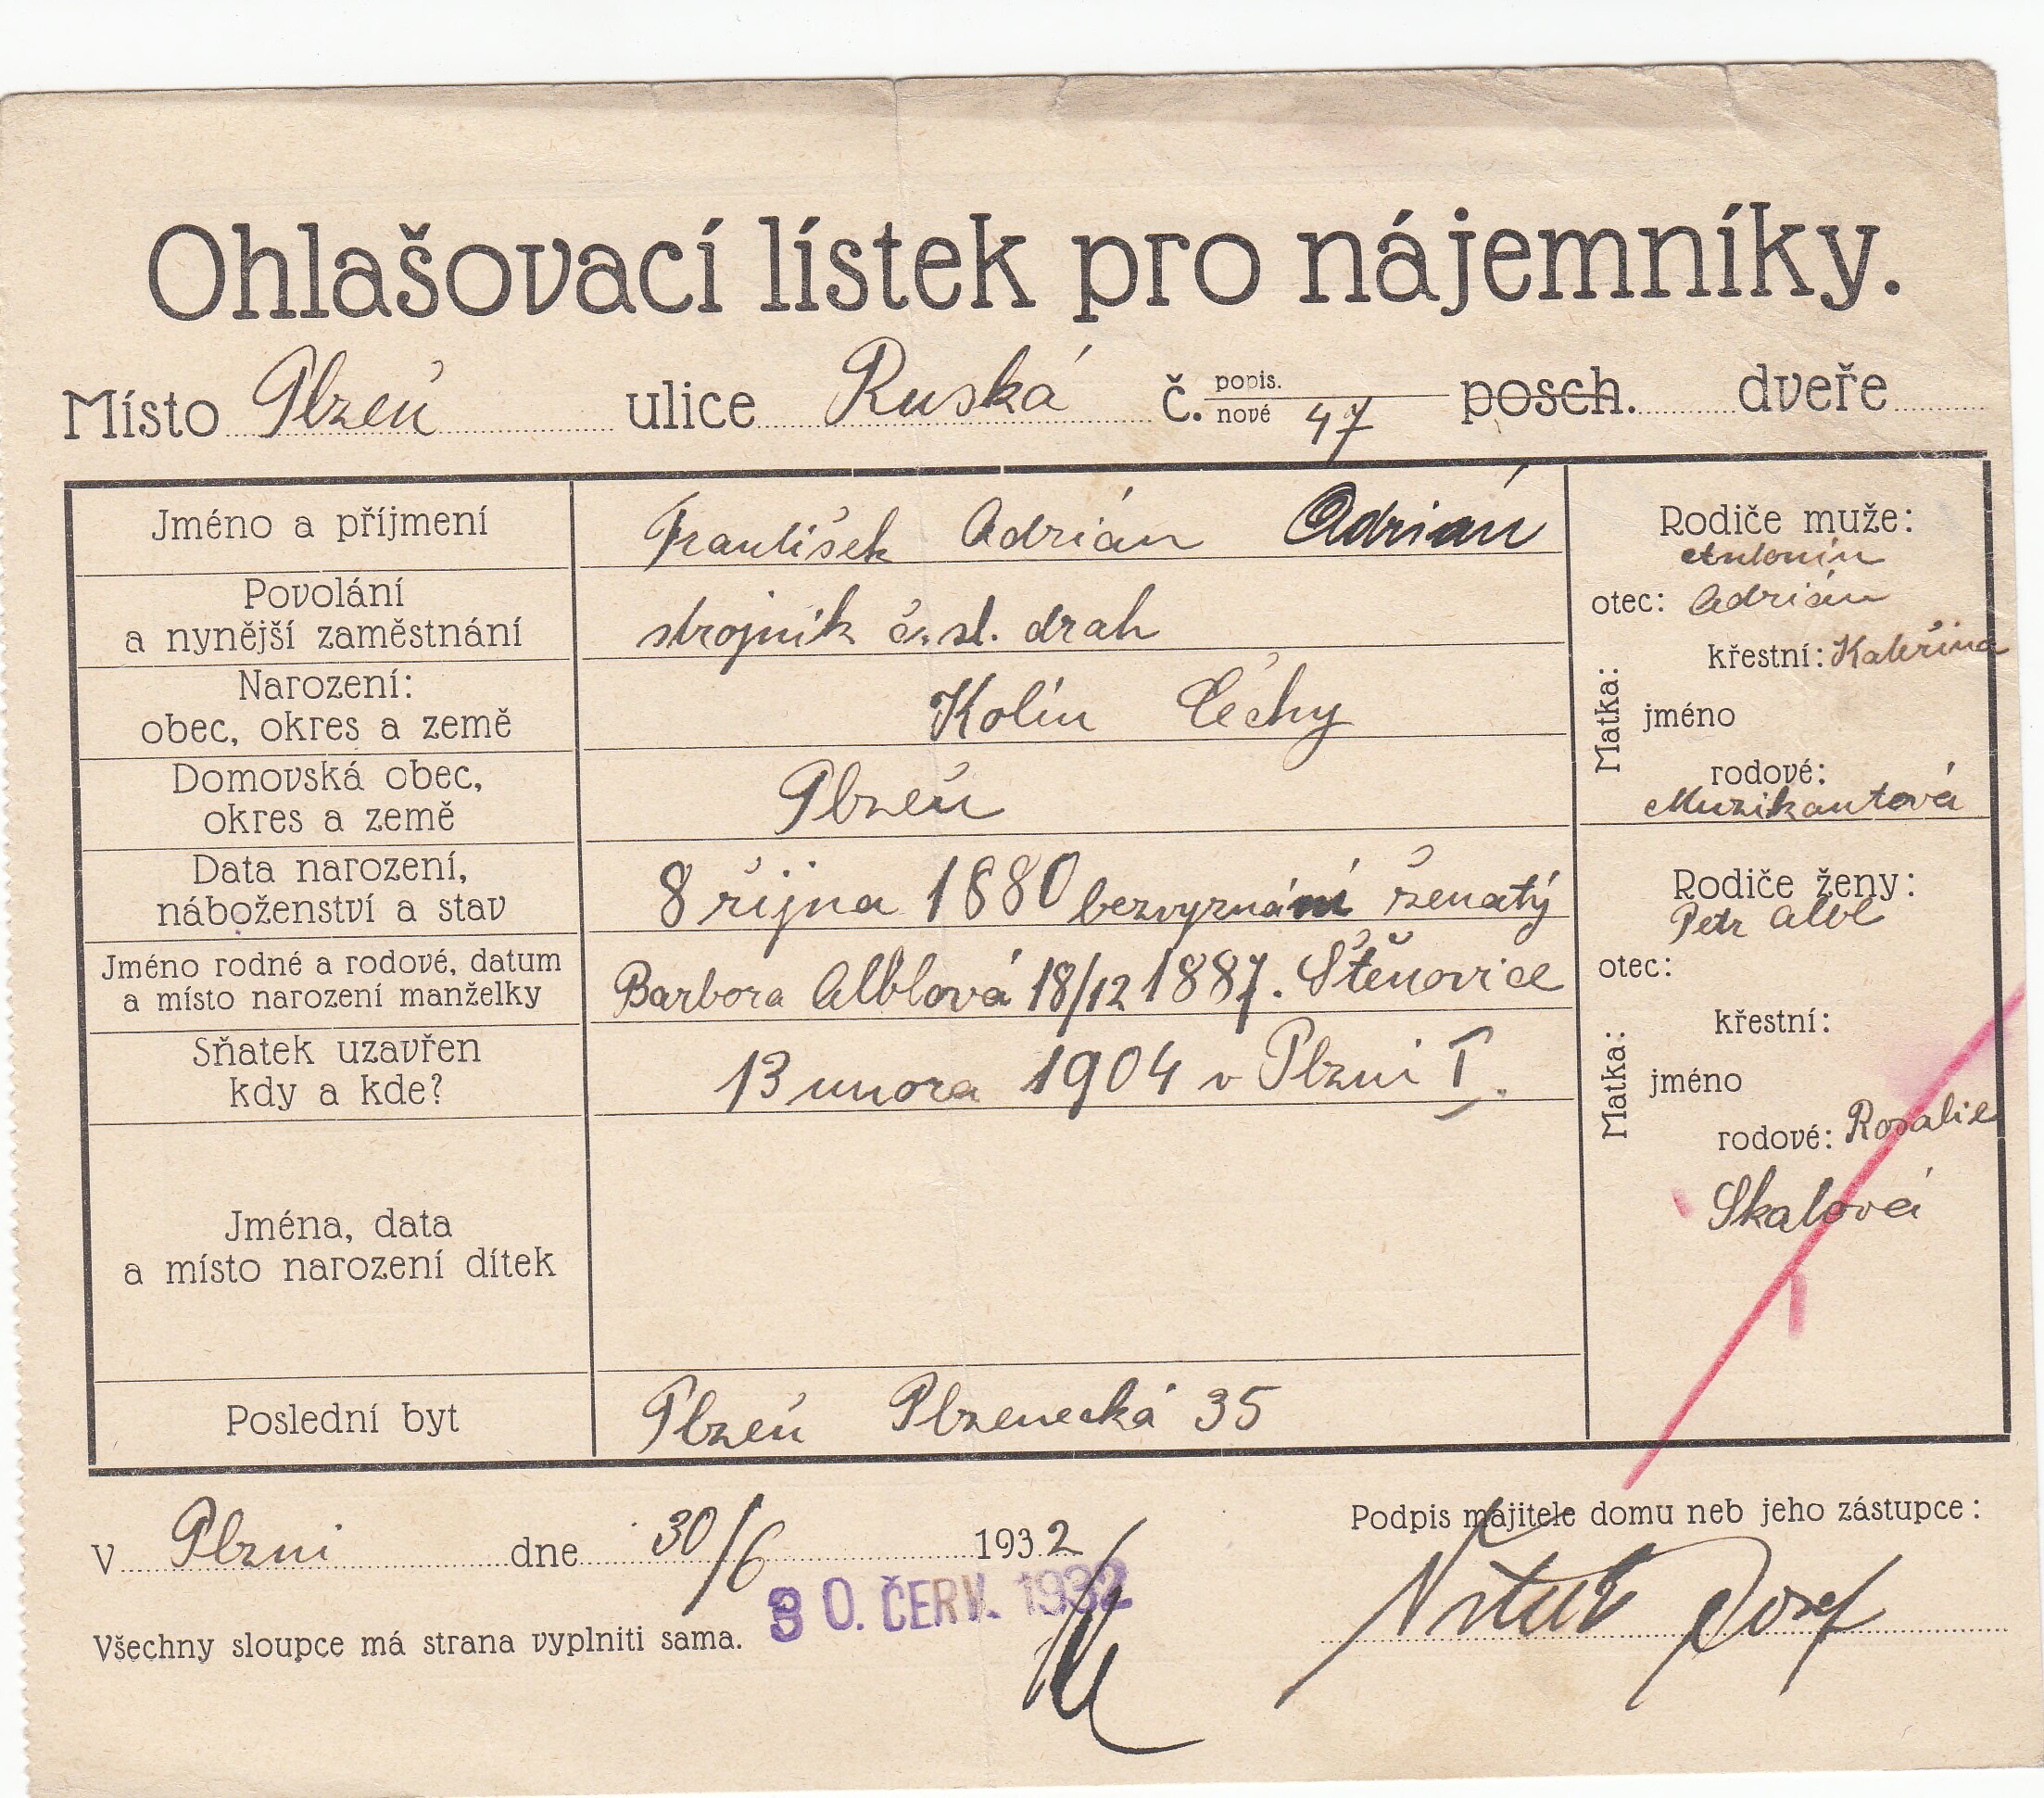 Ohlašovací lístek pro nájemníky.
Místo Plzeň ulice Ruská č. popis. nové 47 posch. dveře
Jméno a příjmení František Adrián Adrián
Povolání
a nynější zaměstnání strojník č. sl. drah
Narození:
obec, okres a země Kolín Čechy
Domovská obec,
okres a země Plzeň
Data narození,
náboženství a stav 8 října 1880 bezvyznání ženatý
Jméno rodné a rodové, datum
a místo narození manželky Barbora Alblová 18/12 1887. Štěnovice
Sňatek uzavřen
kdy a kde? 13 unora 1904 v Plzni I.
Jména, data
a místo narození dítek
Poslední byt Plzeň Plzenecká 35
Rodiče muže:
Antonín
otec: Adrián
Matka:
křestní: Kateřina
jméno
rodové:
Muzikantová
Rodiče ženy:
Petr Albl
otec:
Matka:
křestní:
jméno
rodové: Rosalie
Skalová
V Plzni dne 30/6 1932
30. ČERV. 1932
Všechny sloupce má strana vyplniti sama.
Podpis majitele domu neb jeho zástupce:
Josef